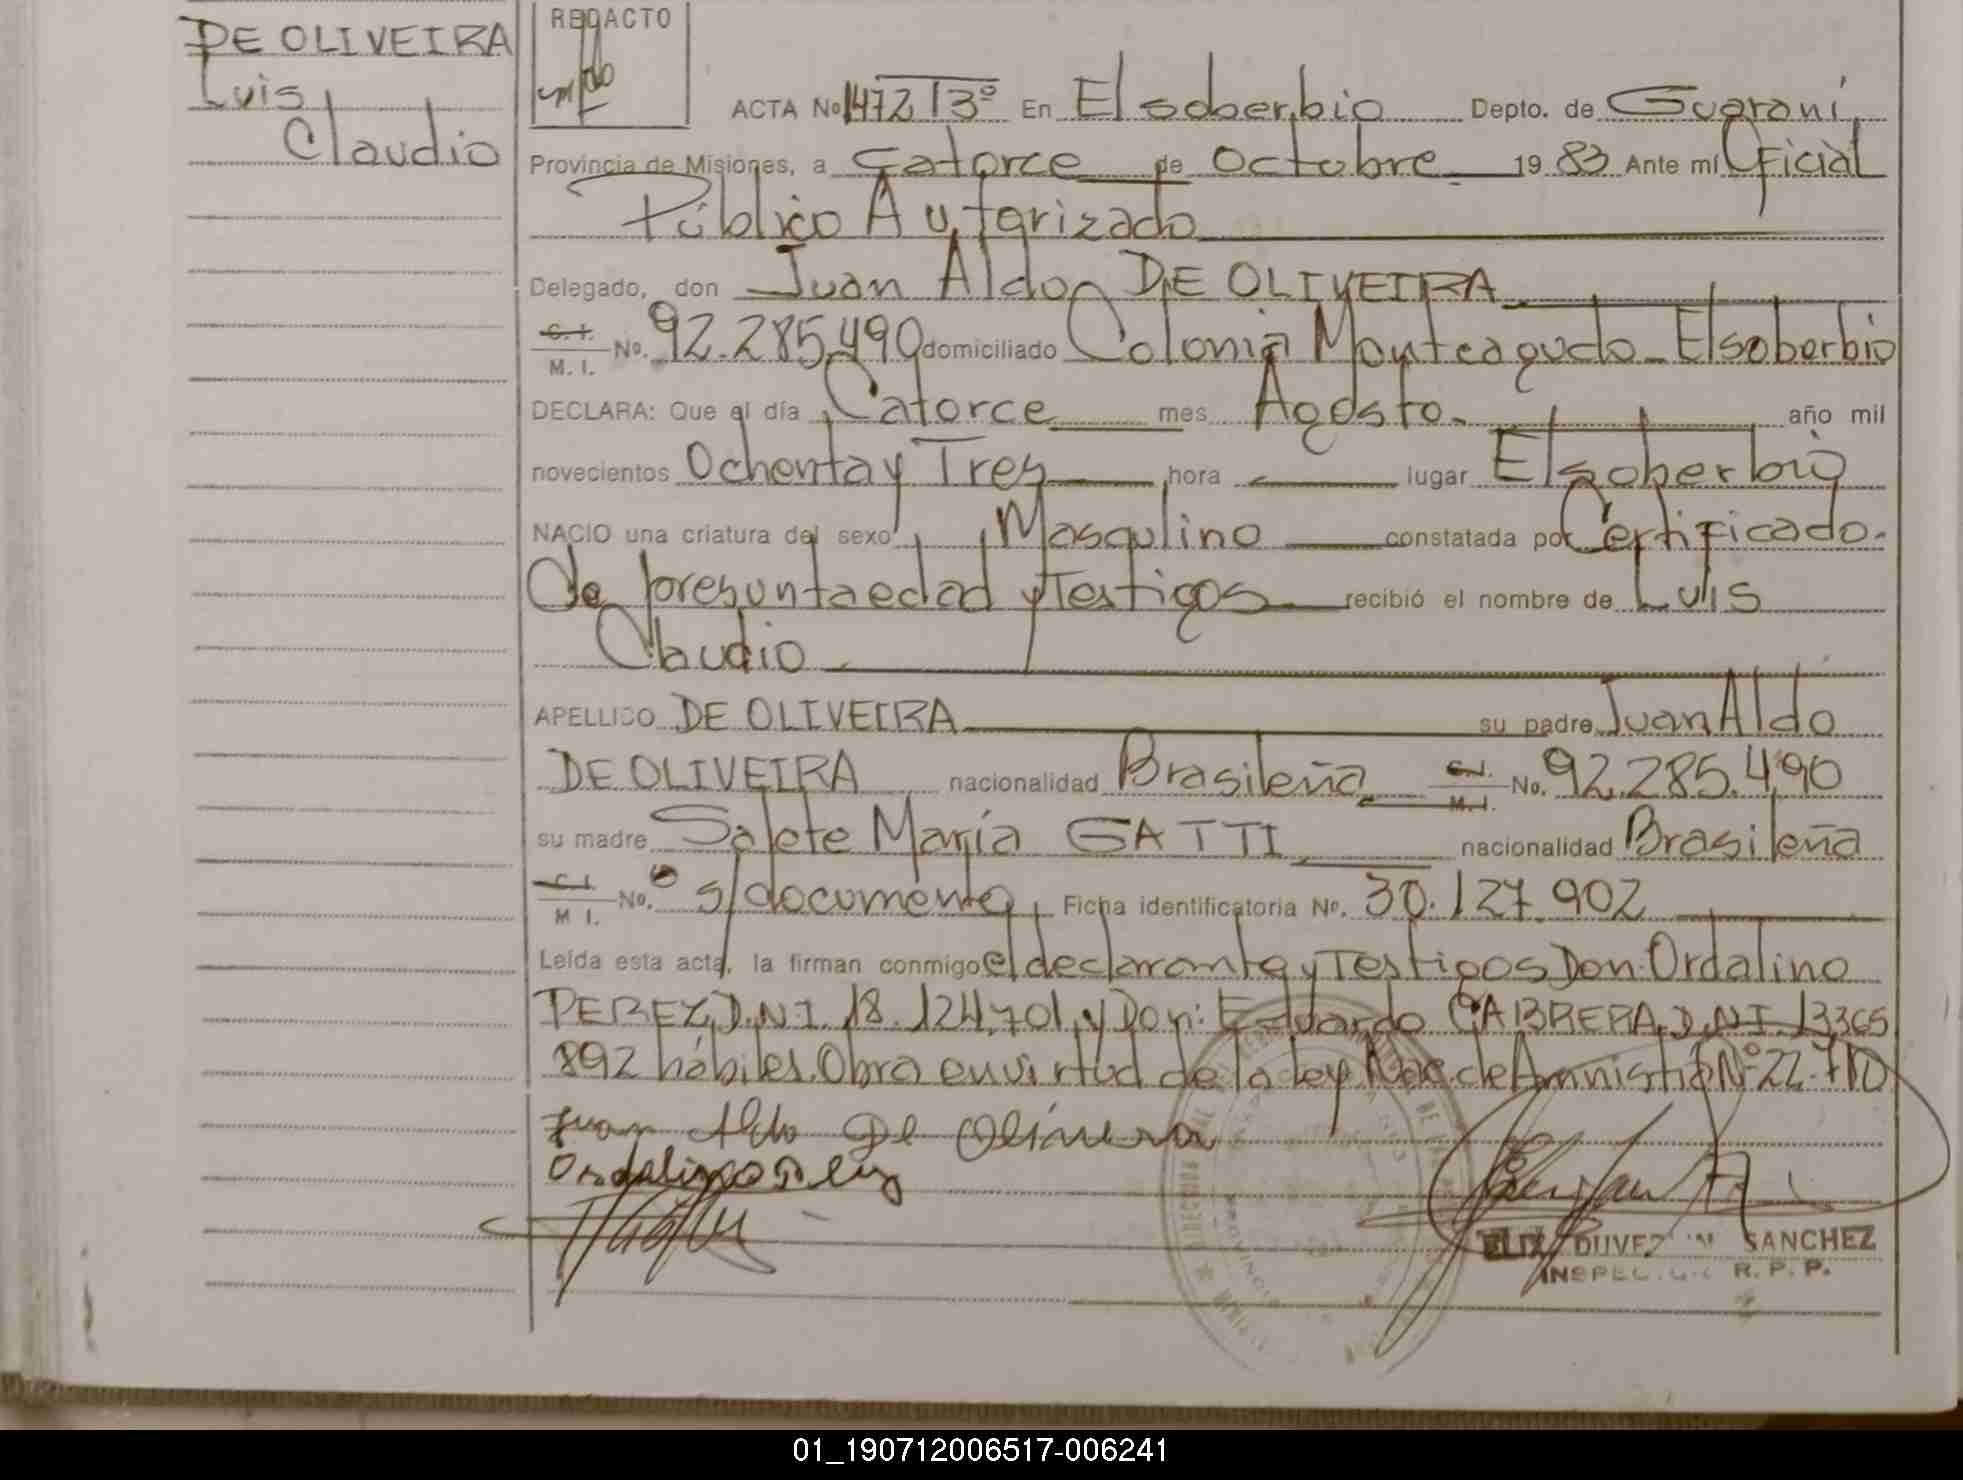 DE OLIVEIRA
Luis
Claudio
REDACTO
ACTA No 1472 T3º En El soberbio Depto. de Guaraní
Provincia de Misiones, a Catorce de Octubre 19 83 Ante mí Oficial
Público Autorizado
Delegado, don Juan Aldo DE OLIVEIRA
C. I.
M. I. No. 92.285.490 domiciliado Colonia Monteagudo - El soberbio
DECLARA: Que el día Catorce mes Agosto año mil
novecientos Ochenta y Tres hora lugar El soberbio
NACIO una criatura del sexo Masculino constatada por Certificado
de presunta edad y Testigos recibió el nombre de Luis
Claudio
APELLIDO DE OLIVEIRA su padre Juan Aldo
DE OLIVEIRA nacionalidad Brasileña C.I. M.I. No. 92.285.490
su madre Salete María GATTI nacionalidad Brasileña
C.I.
M I. No. s/documento, Ficha identificatoria No. 30.127.902
Leída esta acta, la firman conmigo el declarante y Testigos Don: Ordalino
PEREZ, D.N.I. 18.124.701 y Don: Eduardo CABRERA, D.N.I. 13365
892 hábiles. Obra en virtud de la Ley Nac. de Amnistía Nº 22.710
Juan Aldo De Oliveira
SANCHEZ
R. P. P.
01_190712006517-006241